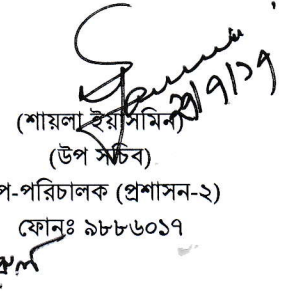 (শায়লা ইয়াসমিন)
(উপ সচিব)
প-পরিচালক (প্রশাসন-২)
ফোনঃ ৯৮৮৬০১৭